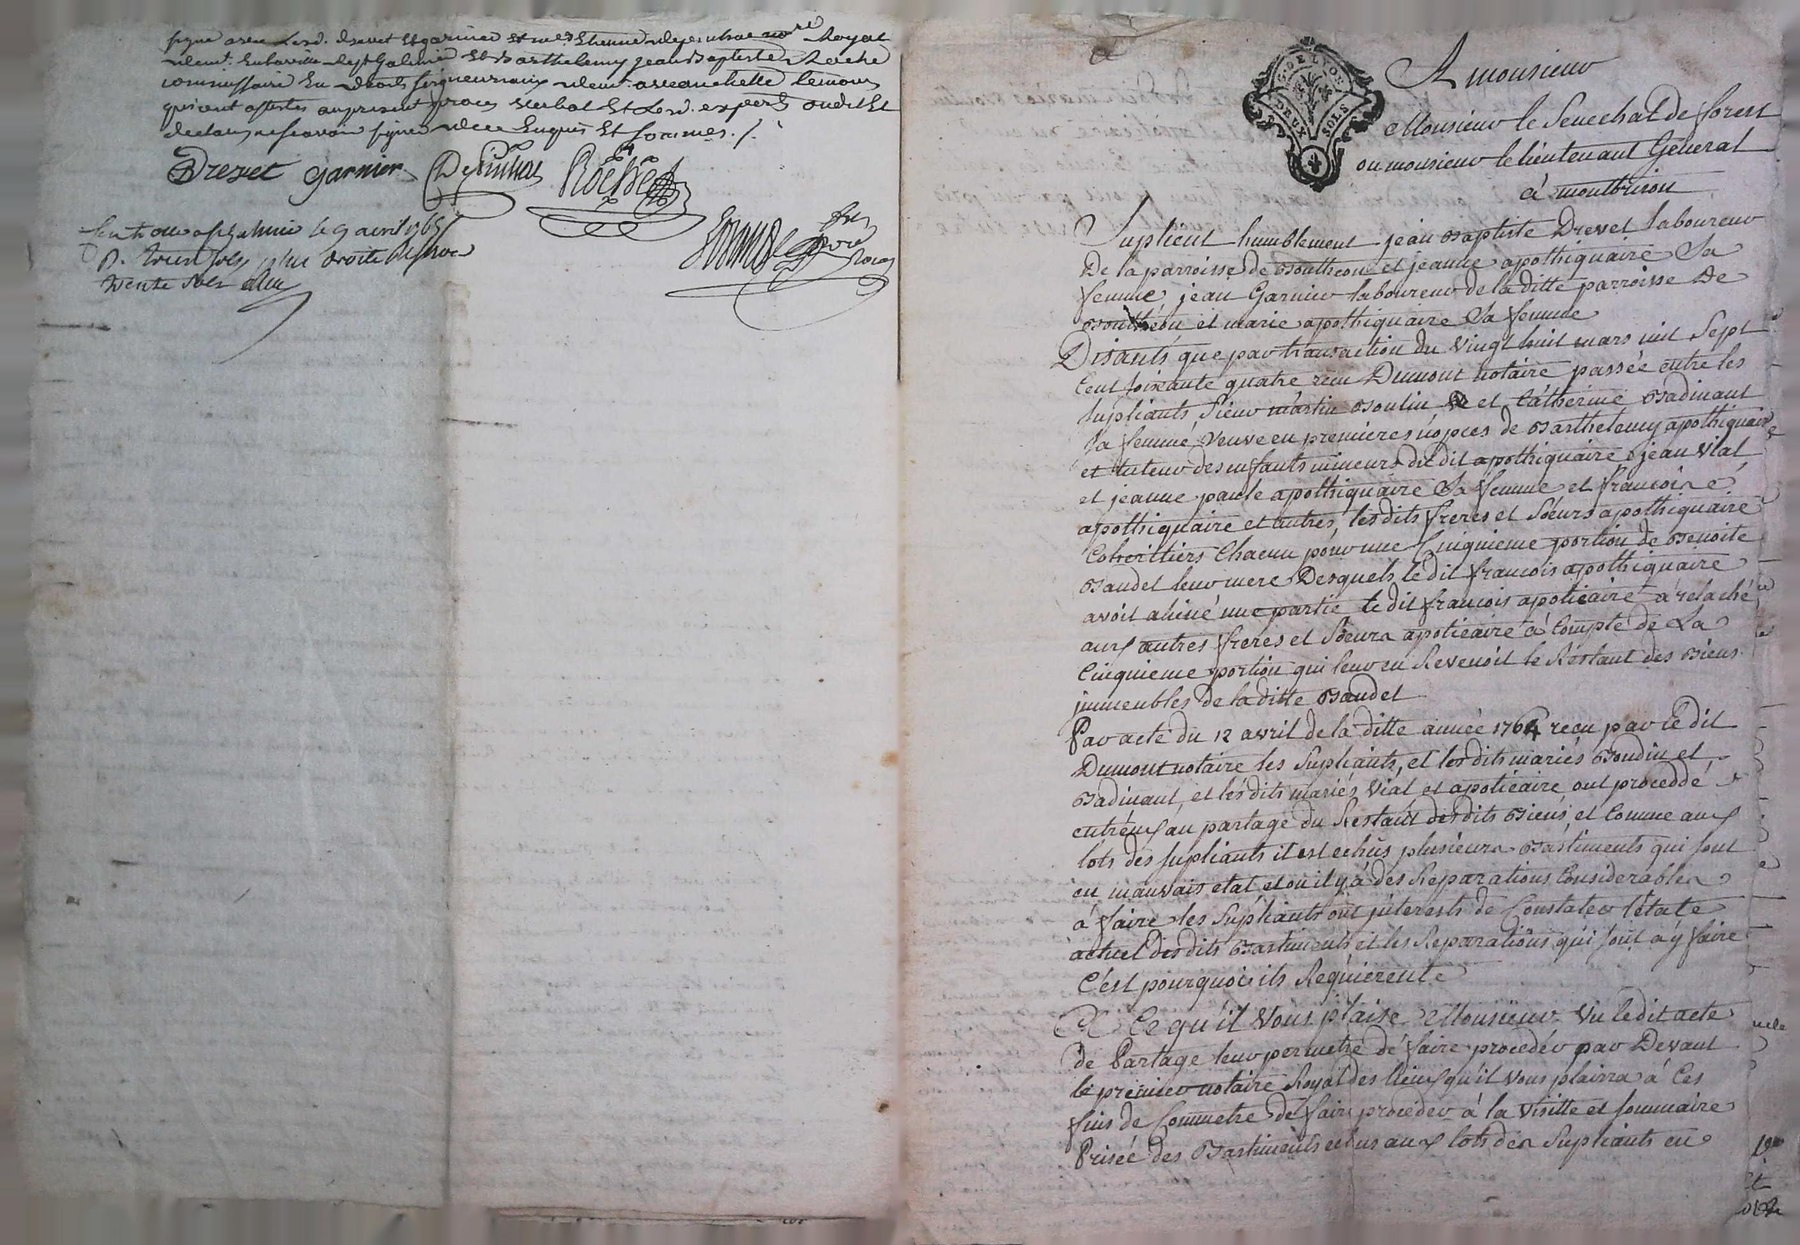 signé avec lesd. drevet et garnier et me. Etienne depinhac no.re Royal
demt. en la ville de st Galmier et Barthelemy jean Baptiste Roche
commissaire En droits seigneuriaux demt. a
qui ont assistés au present procès verbal et lesd. experts ont dit et
declaré ne scavoir signer de ce Enquis et sommes ./.
Drevet garnier Roche
a st galmier le 9 avril 1765
R. treize sols plus droit
trente sols
G. DE LYON
DEUX SOLS
A monsieur
Monsieur le Senechal de forest
ou monsieur le lieutenant General
à montbrison
Suplient humblement jean Baptiste Drevet laboureur
De la parroisse de Boutheon et jeanne apothiquaire Sa
femme, jean Garnier laboureur de la ditte parroisse De
Boutheon et marie apothiquaire Sa femme
Disants que par transaction du vingt huit mars mil Sept
Cent soixante quatre reçu Dumont notaire passée entre les
supliants, sieur martin Boudin et Catherine Badinant
Sa femme, veuve en premieres nopces de Barthelemy apothiquaire
et tuteur des enfants mineurs du dit apothiquaire, jean Vial
et jeanne paule apothiquaire Sa femme et françois
apothiquaire et autres, les dits freres et Sœurs apothiquaire
Coheritiers Chacun pour une Cinquieme portion de Benoite
Baudet leur mere Desquels le dit françois apothiquaire
avoit aliené une partie le dit françois apoticaire à relaché
aux autres freres et Sœurs apoticaire à Compte de La
Cinquieme portion qui leur en Revenoit le Restant des Biens
immeubles de la ditte Baudet
Par acte du 12 avril de la ditte année 1764 reçu par le dit
Dumont notaire les Supliants, et les dits mariés Boudin et
Badinant, et les dits mariés Vial et apoticaire, ont procedde
entréux au partage du Restant desdits Biens, et Comme aux
lots des supliants il est echus plusieurs Bastiments qui sont
en mauvais etat et ou il y à des Reparations Considerables
à faire les Supliants ont interests de Constater l'état
actuel des dits Bastiments et les Reparations qui sont a y faire
C'est pourquoi ils Requierent
A Ce qu'il Vous plaise Monsieur Vu le dit acte
de Partage leur permetre de faire proceder par Devant
le premier notaire Royal des lieux qu'il vous plairra à Ces
fins de Commetre de faire proceder à la visitte et sommaire
Prisée des Bastiments echus aux lots des Supliants en